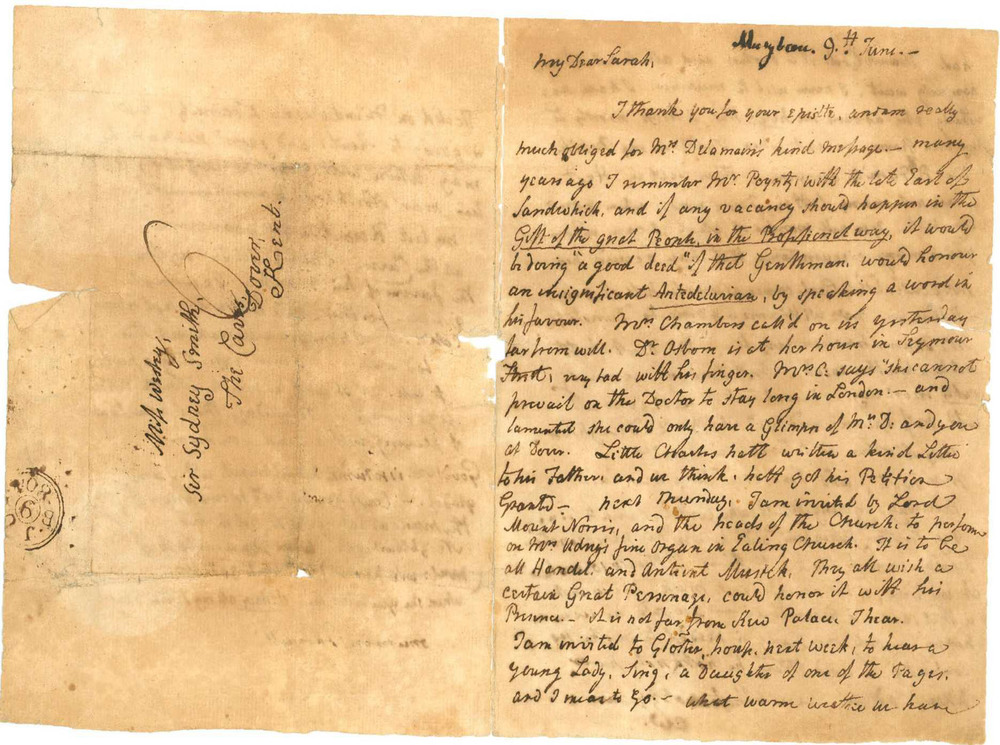 Miss Wesley,
Sir Sydney Smith,
The Cave,
Dover,
Kent.
9.th June. —
My Dear Sarah,
I thank you for your Epistle, and am really
much obliged for Mrs. Delamain's kind message. — many
years ago I remember Mr. Poyntz, with the late Earl of
Sandwhich, and if any vacancy should happen in the
Gift of the great People, in the Professional way, it would
be doing "a good deed" if that Gentleman, would honour
an insignificant Antedeluvian, by speaking a word in
his favour. Mrs. Chambers call'd on us yesterday
far from well. Dr. Osborn is at her house in Seymour
Street, very bad with his finger. Mrs. C. says "she cannot
prevail on the Doctor to stay long in London. — and
lamented she could only have a Glimpse of Mrs. D: and you
at Dover. Little Charles hath written a kind Letter
to his Father, and we think, hath got his Petition
Granted — next Thursday, I am invited by Lord
Mount Norris, and the heads of the Church, to perform
on Mrs. fine Organ in Ealing Church. It is to be
all Handel, and Antient Musick, They all wish a
certain Great Personage, could honor it with his
Presence — it is not far from Kew Palace, I hear.
I am invited to Gloster house, next week, to hear a
young Lady, Sing, a Daughter of one of the Pages,
and I mean to Go. — what warm weather we have